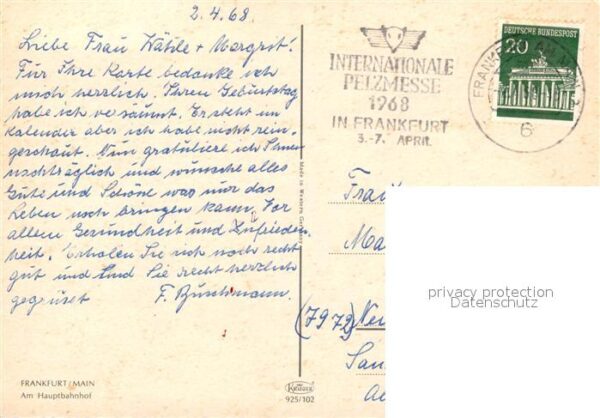 2.4.68
Liebe Frau Wätzle + Margrit!
Für Ihre Karte bedanke ich
mich herzlich. Ihren Geburtstag
habe ich versäumt. Er steht im
Kalender aber ich habe nicht rein-
geschaut. Nun gratuliere ich Ihnen
nachträglich und wünsche alles
Gute und Schöne was nur das
Leben noch bringen kann. Vor
allem Gesundheit und Zufrieden-
heit. Erholen Sie sich noch recht
gut und sind Sie recht herzlich
gegrüsst F. Buschmann.
FRANKFURT/MAIN
Am Hauptbahnhof
Made in Western Germany
Krüger
925/102
INTERNATIONALE
PELZMESSE
1968
IN FRANKFURT
3.-7. APRIL
DEUTSCHE BUNDESPOST
20
FRANKFURT AM MAIN 3
6
Frau
Ma
(7972) Neu
privacy protection
Datenschutz